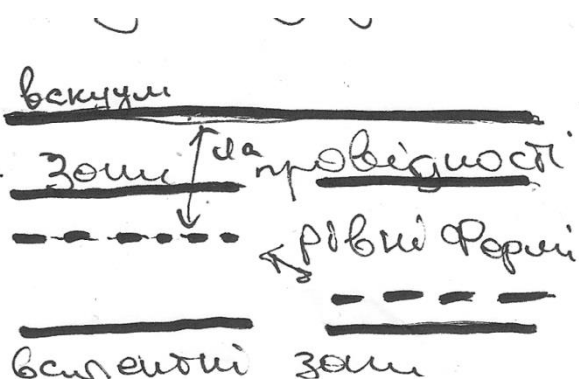 вакуум
Зони провідності
Рівні Фермі
валентні зони